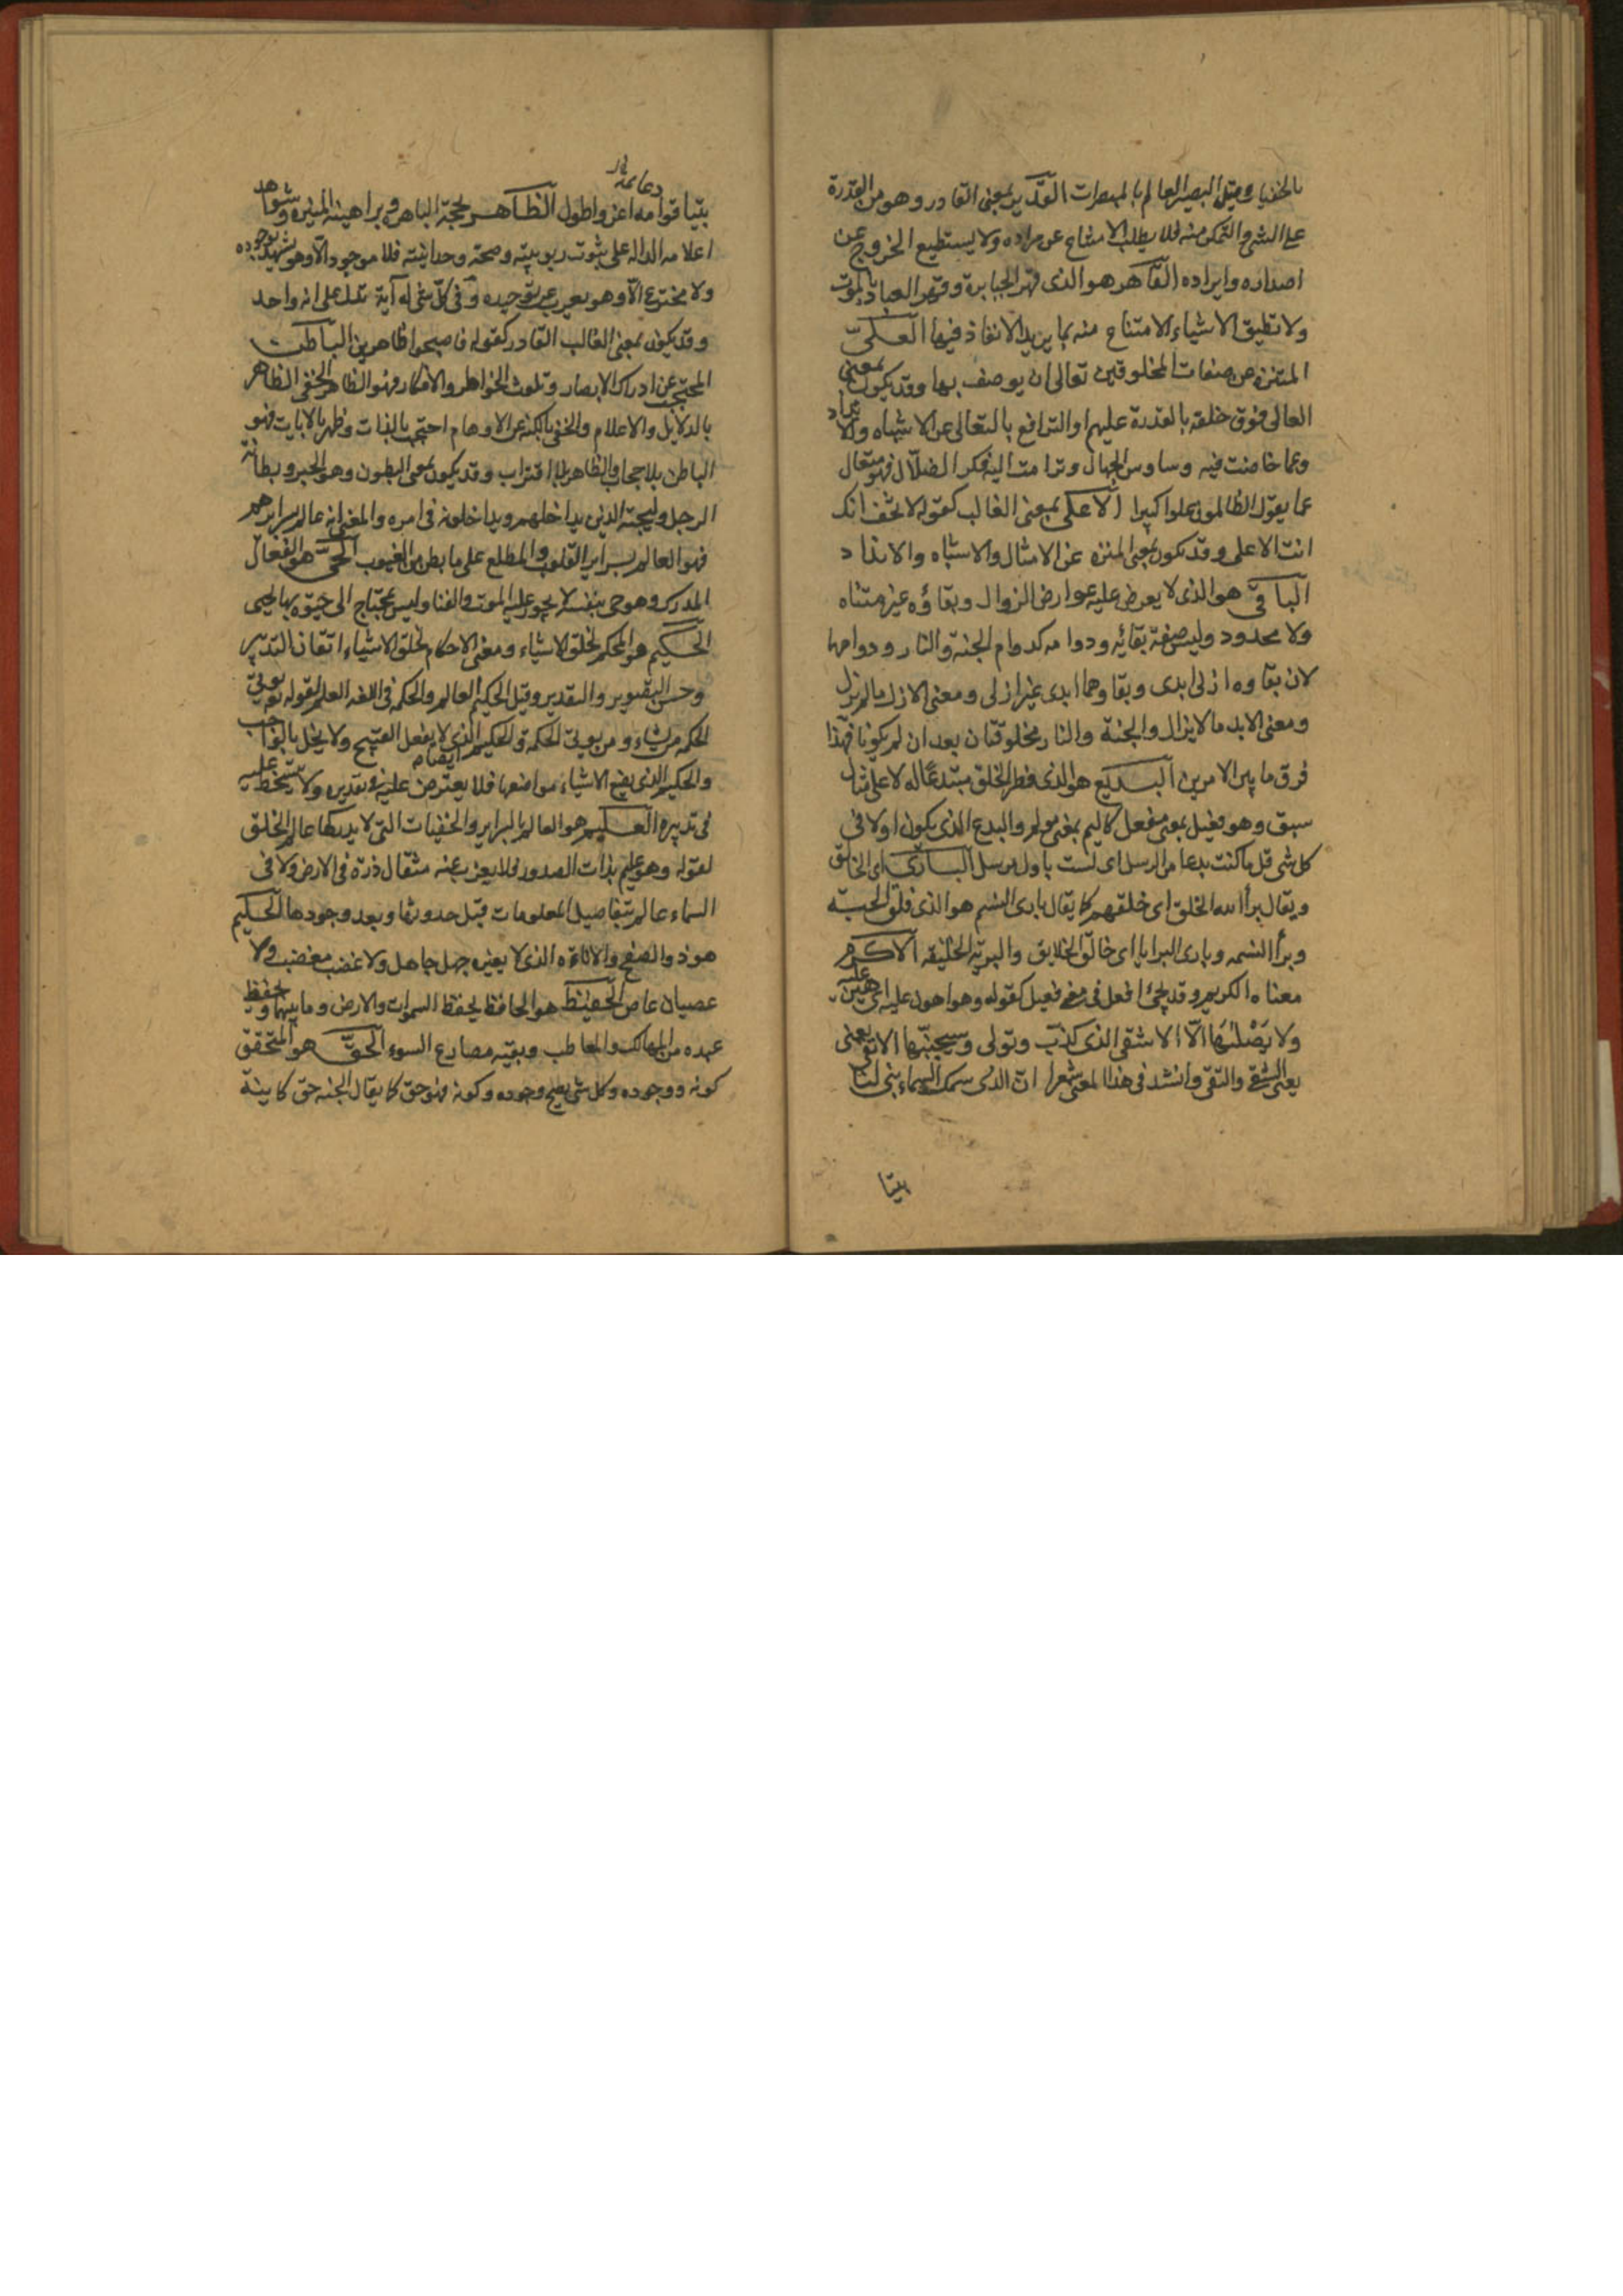 بالخفيات وقيل البصير العالم بالمبصرات القدير بمعنى القادر وهو من القدرة
على الشئ والتمكن منه فلا يطلب الامتناع عن مراده ولا يستطيع الخروج عن
اصداره وايراده القاهر هو الذى قهر الجبابرة وقهر العباد بالموت
ولا تطيق الاشياء الامتناع منه بما يريد الانفاذ فيها العلىّ
المتنزه عن صفات المخلوقين تعالى ان يوصف بها وقد يكون بمعنى
العالى فوق خلقه بالقدرة عليهم او الترافع بالتعالى عن الاشباه والانداد
وعما خاضت فيه وساوس الجهال وترامت اليه فكر الضلّال فهو متعال
عما يقول الظالمون علوا كبيرا الاعلى بمعنى الغالب كقوله لا تخف انك
انت الاعلى وقد يكون بمعنى المتنزه عن الامثال والاشباه والانداد
الباقى هو الذى لا يعرض عليه عوارض الزوال وبقاؤه غير متناه
ولا محدود وليس صفة بقائه ودوامه كدوام الجنة والنار ودوامها
لان بقاوه ازلى ابدى وبقاوهما ابدى غير ازلى ومعنى الازل ما لم يزل
ومعنى الابد ما لا يزال والجنة والنار مخلوقتان بعد ان لم يكونا فهذا
فرق ما بين الامرين البديع هو الذى فطر الخلق مبتدعًا له لا على مثال
سبق وهو فعيل بمعنى مفعل كاليم بمعنى مولم والبدع الذى يكون اولا فى
كل شى قل ما كنت بدعا من الرسل اى لست باول مرسل البارى اى الخالق
ويقال برأ الله الخلق اى خلقهم كما يقال بارى النسم هو الذى فلق الحبة
وبرأ النسمه وبارى البرايا اى خالق الخلايق والبريّة الخليقه الاكرم
معناه الكريم وقد يجئ افعل فى معنى فعيل كقوله وهو اهون عليه اى هين عليه
ولا يَصْلٰيهَا الّا الاشقى الذى كذّب وتولى وسيجنّبها الاتقى يعنى
يعنى الشقى والتقى وانشد فى هذا المعنى شعرا انّ الذى سمك السماء بنى لنا
بيتا
بيتا قوامه اعز واطول الظاهر بحجته الباهرة وبراهينه المنيره وشواهد
دعايمه
اعلامه الداله على ثبوت ربوبيته وصحة وحدانيته فلا موجود الّا وهو يشهد بوجوده
ولا مخترع الّا وهو يعرب عن توحيده وفى كلّ شى له آية تدل على انه واحد
وقد يكون بمعنى الغالب القادر كقوله فاصبحوا ظاهرين الباطن
المحتجب عن ادراك الابصار وتلوث الخواطر والافكار فهو الظاهر الخفى الظاهر
بالدلايل والاعلام والخفى بالكنه عن الاوهام احتجب بالذات وظهر بالايات فهو
الباطن بلا حجاب والظاهر بلا اقتراب وقد يكون بمعنى البطون وهو الخبر وبطانة
الرجل وليجته الذين يداخلهم ويداخلونه فى امره والمعنى انه عالم بسرايرهم
فهو العالم بسراير القلوب والمطلع على ما بطن من الغيوب الحىّ هو الفعال
المدرك وهو حى بنفسه لا يجوز عليه الموت والفنا وليس بمحتاج الى حيوة بها يحيى
الحكيم هو المحكم لخلق الاشياء ومعنى الاحكام لخلق الاشياء اتقان التدبير
وحسن التصوير والتقدير وقيل الحكيم العالم والحكمه فى اللغه العلم لقوله تع يوتى
الحكمه من يشاء ومن يوتى الحكمة والحكيم الذى لا يفعل القبيح ولا يخل بالواجب
والحكيم ايضا الذى يضع الاشياء مواضعها فلا يعترض عليه فى تقديره ولا يتسخط عليه
فى تدبيره العليم هو العالم بالسراير والخفيات التى لا يدركها عالم الخلق
لقوله وهو عليم بذات الصدور فلا يعزب عنه مثقال ذرة فى الارض ولا فى
السماء عالم بتفاصيل المعلومات قبل حدوثها وبعد وجودها الحليم
هو ذو الصفح والاناءة الذى لا يغيره جهل جاهل ولا غضب مغضب ولا
عصيان عاص الحفيظ هو الحافظ يحفظ السموات والارض وما بينهما ويحفظ
عبده من المهالك والمعاطب ويقيه مصارع السوء الحقّ هو المتحقق
كونه ووجوده وكل شى يصح وجوده وكونه فهو حق كما يقال الجنه حق كاينة